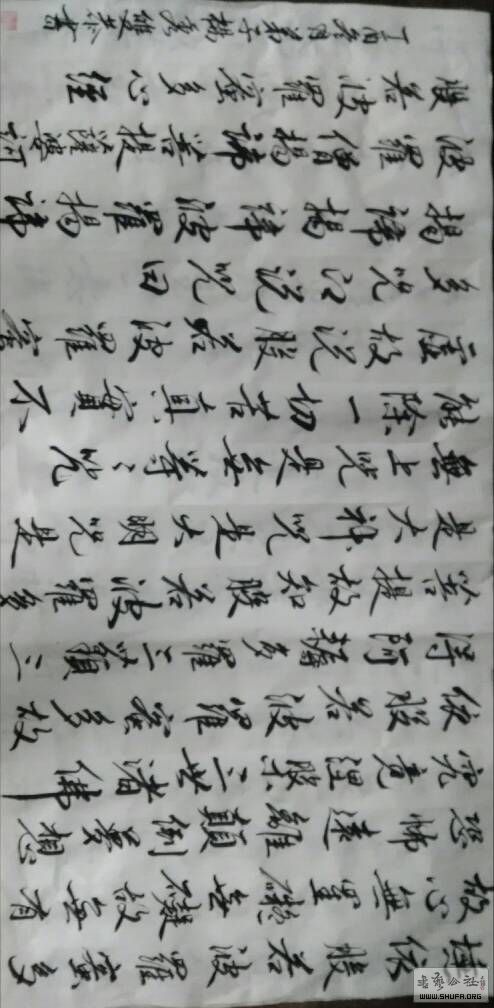 埵依般若波羅蜜多
故心無罣礙無礙故無有
恐怖遠離顛倒夢想
究竟涅槃三世諸佛
依般若波羅蜜多故
得阿耨多羅三藐三
菩提故知般若波羅多
是大神咒是大明咒是
無上咒是無等々咒
能除一切苦真實不
虛故说般若波羅蜜
多咒即说咒曰
揭諦揭諦波羅揭諦
波羅僧揭諦菩提薩婆訶
般若波羅蜜多心經
丁酉冬月弟子楊雙恭書
书艺公社
WWW.SHUFA.ORG